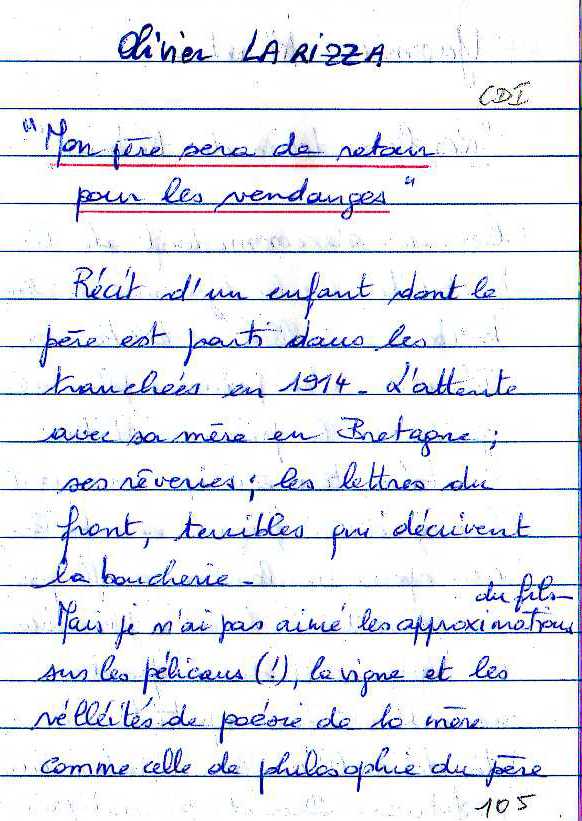 Olivier LARIZZA
CDI
"Mon père sera de retour
pour les vendanges"
Récit d'un enfant dont le
père est parti dans les
tranchées en 1914 - L'attente
avec sa mère en Bretagne ;
ses rêveries ; les lettres du
front, terribles qui décrivent
la boucherie -
du fils
Mais je n'ai pas aimé les approximations
sur les pélicans (!), la vigne et les
velléités de poésie de la mère
comme celle de philosophie du père
105